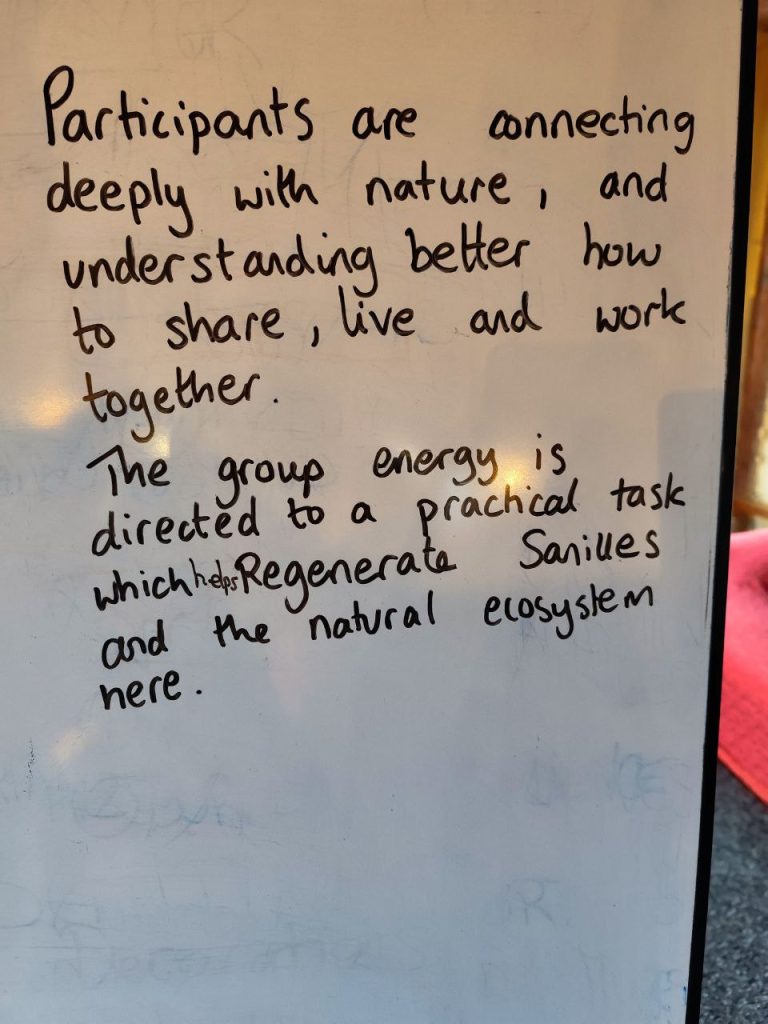 Participants are connecting
deeply with nature, and
understanding better how
to share, live and work
together.
The group energy is
directed to a practical task
which helps Regenerate Sanilles
and the natural ecosystem
here.